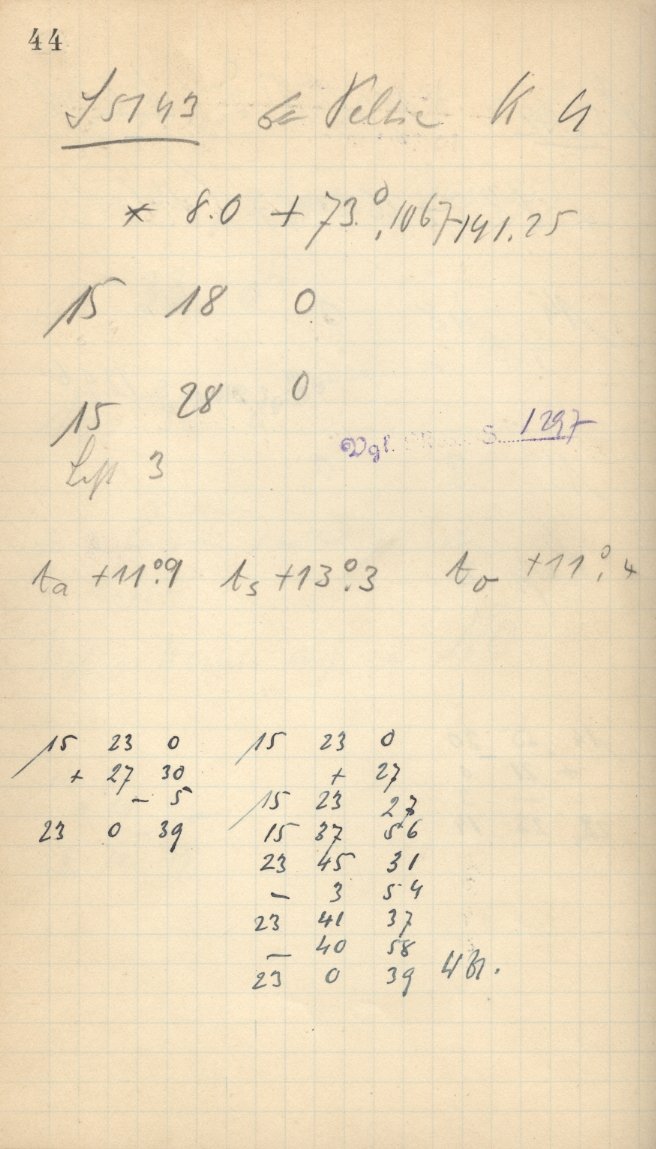 44
S 5143 K 4
* 8.0 +73°,1067 141.25
15 18 0
15 28 0
Vgl. S. 1297
Luft 3
ta +11°.9 ts +13°.3 to +11°.4
15 23 0
+ 27 30
- 5
23 0 39
15 23 0
+ 27
15 23 27
15 37 56
23 45 31
- 3 54
23 41 37
- 40 58
23 0 39